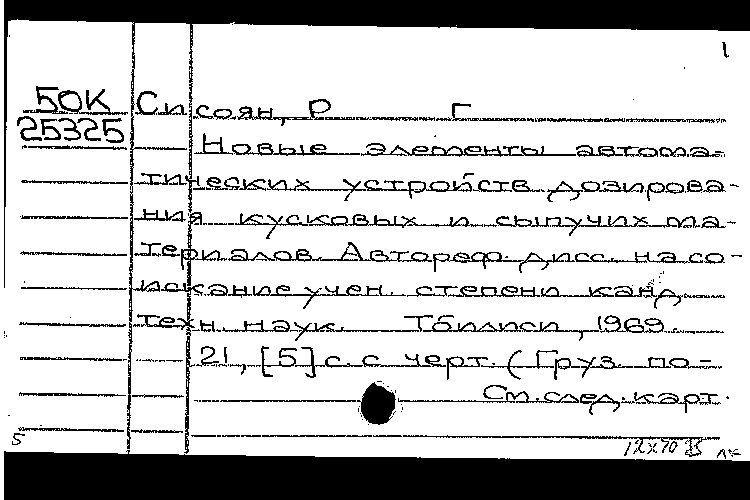 1
50К
25325
Сисоян, Р Г
Новые элементы автома-
тических устройств дозирова-
ния кусковых и сыпучих ма-
териалов. Автореф. дисс. на со-
искание учен. степени канд.
техн. наук. Тбилиси, 1969.
21, [5] с. с черт. (Груз. по-
См. след. карт.
5
12X70